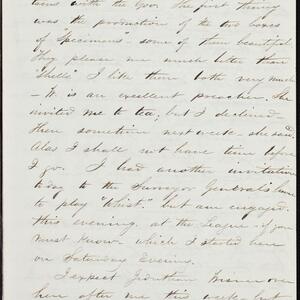 tions with the Gov. The first thing
was the production of the two boxes
of "Specimens" - some of them beautiful
They please me much better than
"Shells" I like them both very much
- H is an excellent preacher. She
invited me to tea; but I declined
then sometime next week - she said
Alas I shall not have time before
I go. I had another invitation
today to the Surveyor General's
to play "Whist". but am engaged
this evening, at the League - if you
must know - which I started here
on Saturday Evening.
I expect Jonathan over
here after me this week but